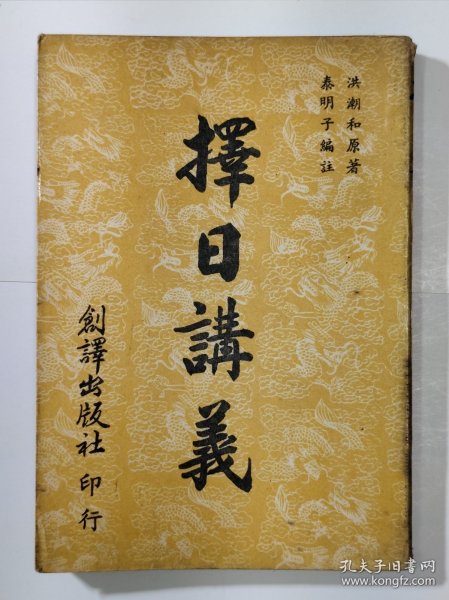 洪潮和原著
泰明子編註
擇日講義
創譯出版社 印行
孔夫子旧书网
www.kongfz.com